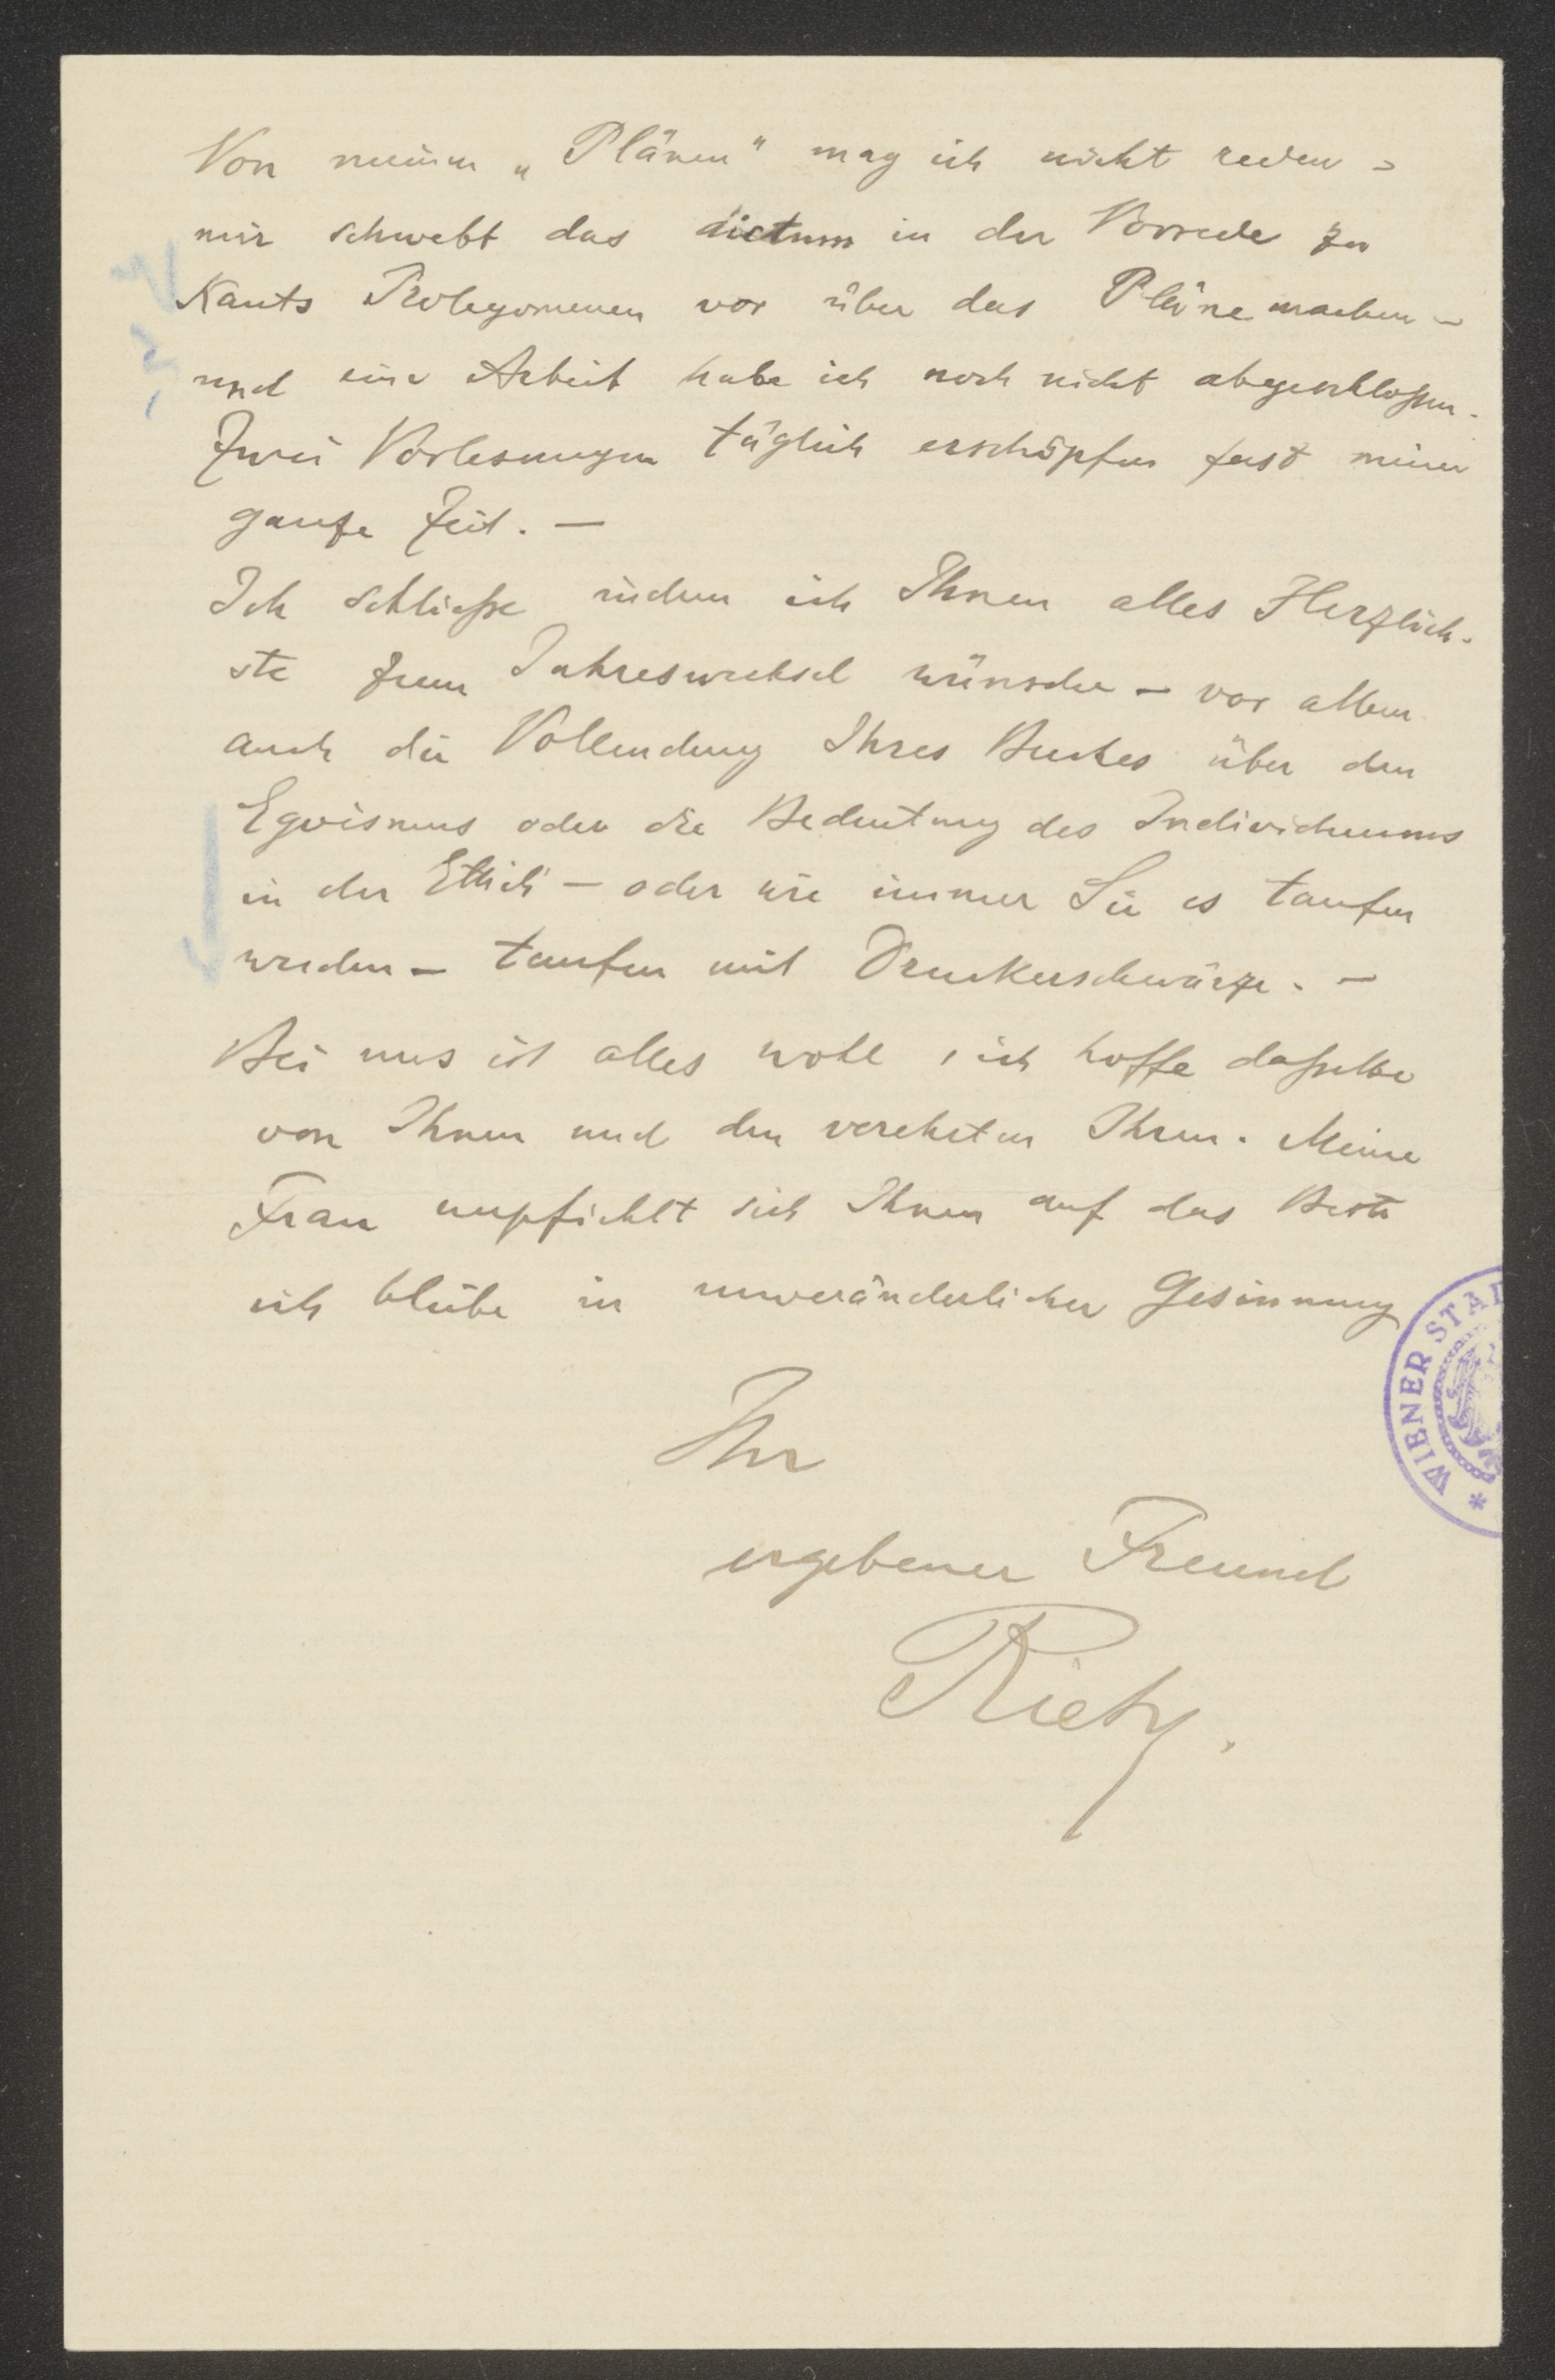 Von meinen „Plänen" mag ich nicht reden -
mir schwebt das dictum in der Vorrede zu
Kants Prolegomenen vor über das Pläne machen -
und eine Arbeit habe ich noch nicht abgeschlossen.
Zwei Vorlesungen täglich erschöpfen fast meine
ganze Zeit. —
Ich schließe indem ich Ihnen alles Herzlich-
ste zum Jahreswechsel wünsche — vor allem
auch die Vollendung Ihres Buches über den
Egoismus oder die Bedeutung des Individuums
in der Ethik — oder wie immer Sie es taufen
werden — taufen mit Druckerschwärze. —
Bei uns ist alles wohl, ich hoffe dasselbe
von Ihnen und den verehrten Ihren. Meine
Frau empfiehlt sich Ihnen auf das Beste
ich bleibe in unveränderlicher Gesinnung
Ihr
ergebener Freund
Riehl.
* WIENER STA